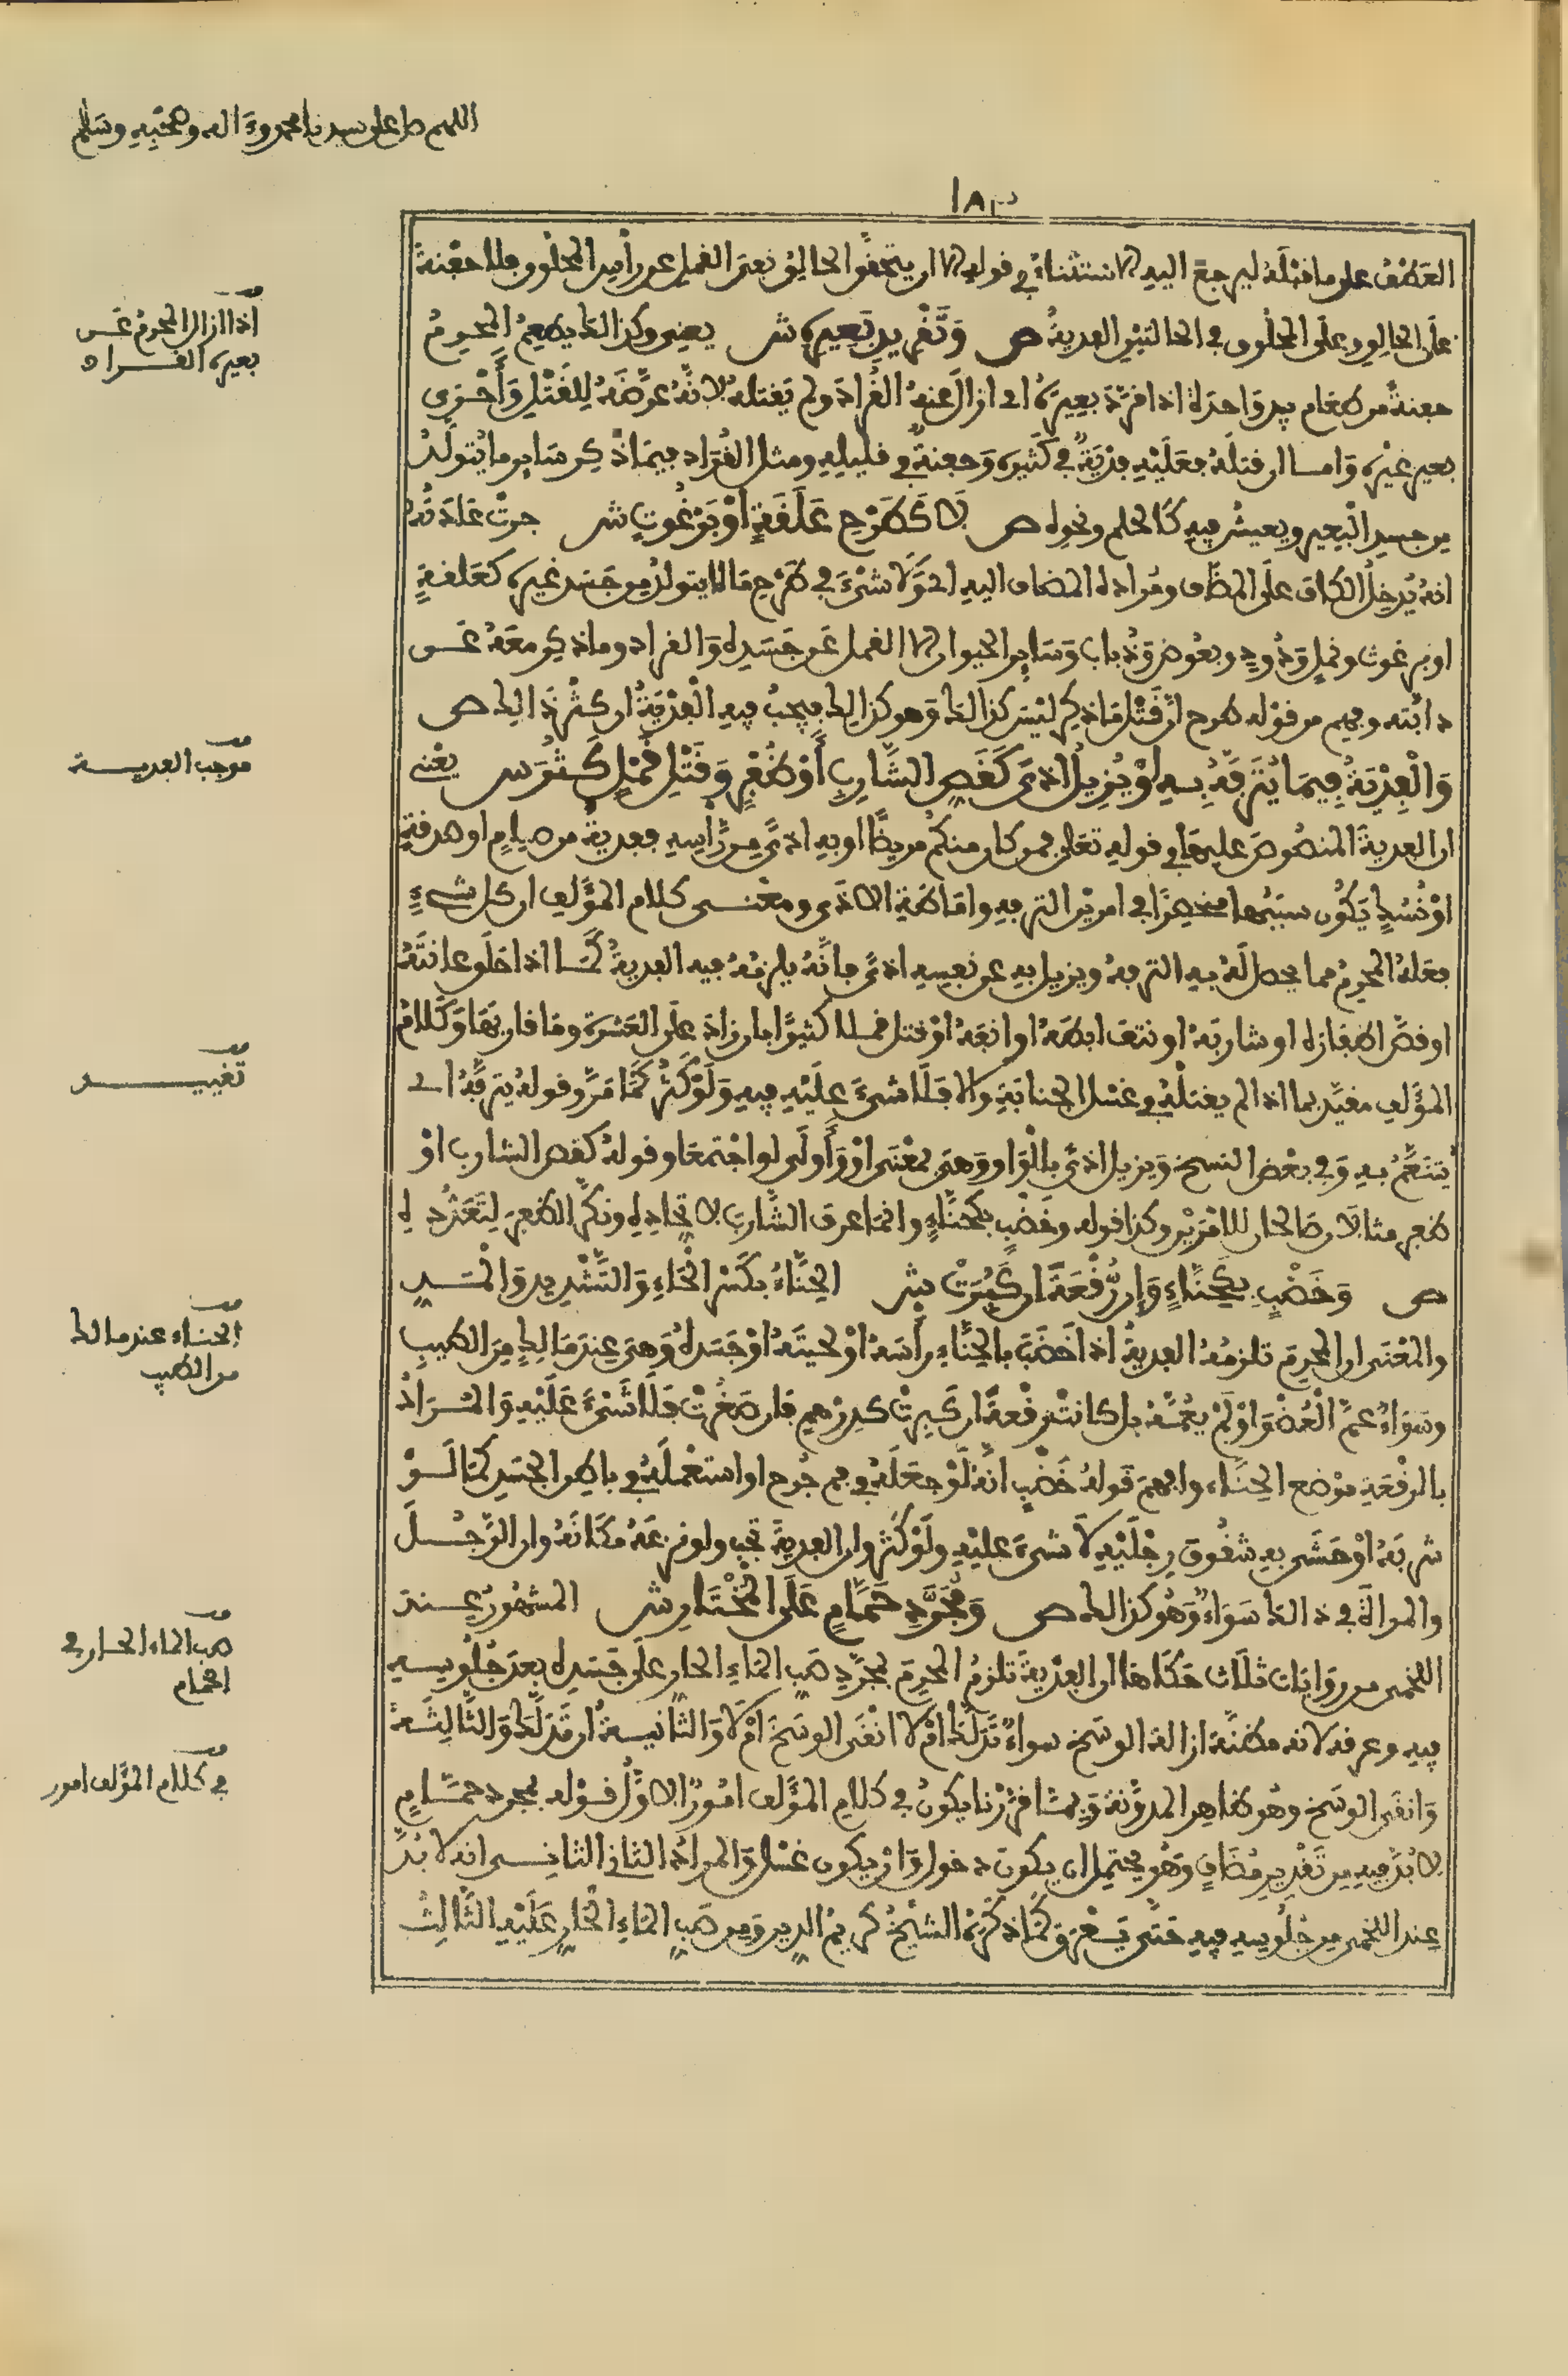 اللهم صل على سيدنا محمد وءاله وصحبه وسلم
١٨٣
العطف على ما قبله ليرجع اليه الاستثناء في قوله الا ان يتحقق الحالق نفي القمل عن رأس المحلوق فلا حفنة
على الحالق ولا على المحلوق في الحالتين الفدية ص وَتَقْرِيدِ بَعِيرِهِ ش يعني وكذلك يطعم المحرم
حفنة من طعام بيد واحدة اذا قرد بعيره اي ازال عنه القراد ولم يقتله لانه عرضه للقتل وأحرى
بعير غيره واما ان قتله فعليه فدية في كثيره وحفنة في قليله ومثل القراد فيما ذكر سائر ما يتولد
من جسد البعير ويعيش فيه كالحلم ونحوه ص لَا كَطَرْحِ عَلَقَةٍ أَوْ بَرْغُوثٍ ش جرت عادته
انه يدخل الكاف على المضاف ومراده المضاف اليه اي ولا شيء في طرح ما لا يتولد من جسد غيره كعلقة
او برغوث ونمل ودود وبعوض وذباب وسائر الحيوان الا القمل عن جسده والقراد وما ذكر معه عن
دابته وفهم من قوله طرح ان قتل ما ذكر ليس كذلك وهو كذلك فيجب فيه الفدية ان كثر ذلك ص
وَالْفِدْيَةُ فِيمَا يُتَرَفَّهُ بِهِ أَوْ يُزِيلُ أَذًى كَقَصِّ الشَّارِبِ أَوْ ظُفْرٍ وَقَتْلِ قَمْلٍ كَثُرَ ش يعني
ان الفدية المنصوص عليها في قوله تعالى فمن كان منكم مريضا او به اذى من رأسه ففدية من صيام او صدقة
او نسك يكون سببها منحصرا في امرين الترفه واماطة الاذى ومعنى كلام المؤلف ان كل شيء
فعله المحرم مما يحصل له به الترفه ويزيل به عن نفسه اذى فانه يلزمه فيه الفدية كما اذا حلق عانته
او قص اظفاره او شاربه او نتف ابطه او انفه او قتل قملا كثيرا بان زاد على العشرة وما قاربها وكلام
المؤلف مقيد بما اذا لم يقتله في غسل الجنابة والا فلا شيء عليه فيه ولو كثر كما مر وقوله يترفه اي
يتنعم به وفي بعض النسخ ويزيل اذى بالواو وهي بمعنى او وأولى لو اجتمعا وقوله كقص الشارب او
ظفر مثالان صالحان للامرين وكذا قوله وخضب بكحناء وانما عرف الشارب لاتحاده ونكر الظفر لتعدده
ص وَخَضْبٍ بِكَحِنَّاءٍ وَإِنْ رُقْعَةً إِنْ كَبُرَتْ ش الحناء بكسر الحاء والتشديد والمد
والمعنى ان المحرم تلزمه الفدية اذا خضب بالحناء رأسه او لحيته او جسده وهي عند مالك من الطيب
وسواء عم العضو او لم يعمه بل كانت رقعة ان كبرت كدرهم فان صغرت فلا شيء عليه والمراد
بالرقعة موضع الحناء وافهم قوله خضب انه لو جعله في فم جرح او استعمله في باطن الجسد كما لو
شربه او حشى به شقوق رجليه لا شيء عليه ولو كثر وان الفدية تجب ولو نزعه مكانه وان الرجل
والمرأة في ذلك سواء وهو كذلك ص وَمُجَرَّدِ حَمَّامٍ عَلَى الْمُخْتَارِ ش المشهور عند
اللخمي من روايات ثلاث حكاها ان الفدية تلزم المحرم بمجرد صب الماء الحار على جسده بعد جلوسه
فيه وعرقه لانه مظنة ازالة الوسخ سواء تدلك ام لا انقى الوسخ ام لا والثانية ان تدلك والثالثة
وانقى الوسخ وهو ظاهر المدونة وبما قررنا يكون في كلام المؤلف امور الاول قوله بمجرد حمام
لا بد فيه من تقدير مضاف وهو يحتمل ان يكون دخول وان يكون غسل والمراد الثاني الثاني انه لا بد
عند اللخمي من جلوسه فيه حتى يعرق كما ذكره الشيخ كريم الدين ومن صب الماء الحار عليه الثالث
اذا ازال المحرم عن
بعيره القراد
موجب الفدية
تقييد
الحناء عند مالك
من الطيب
صب الماء الحار في
الحمام
في كلام المؤلف امور